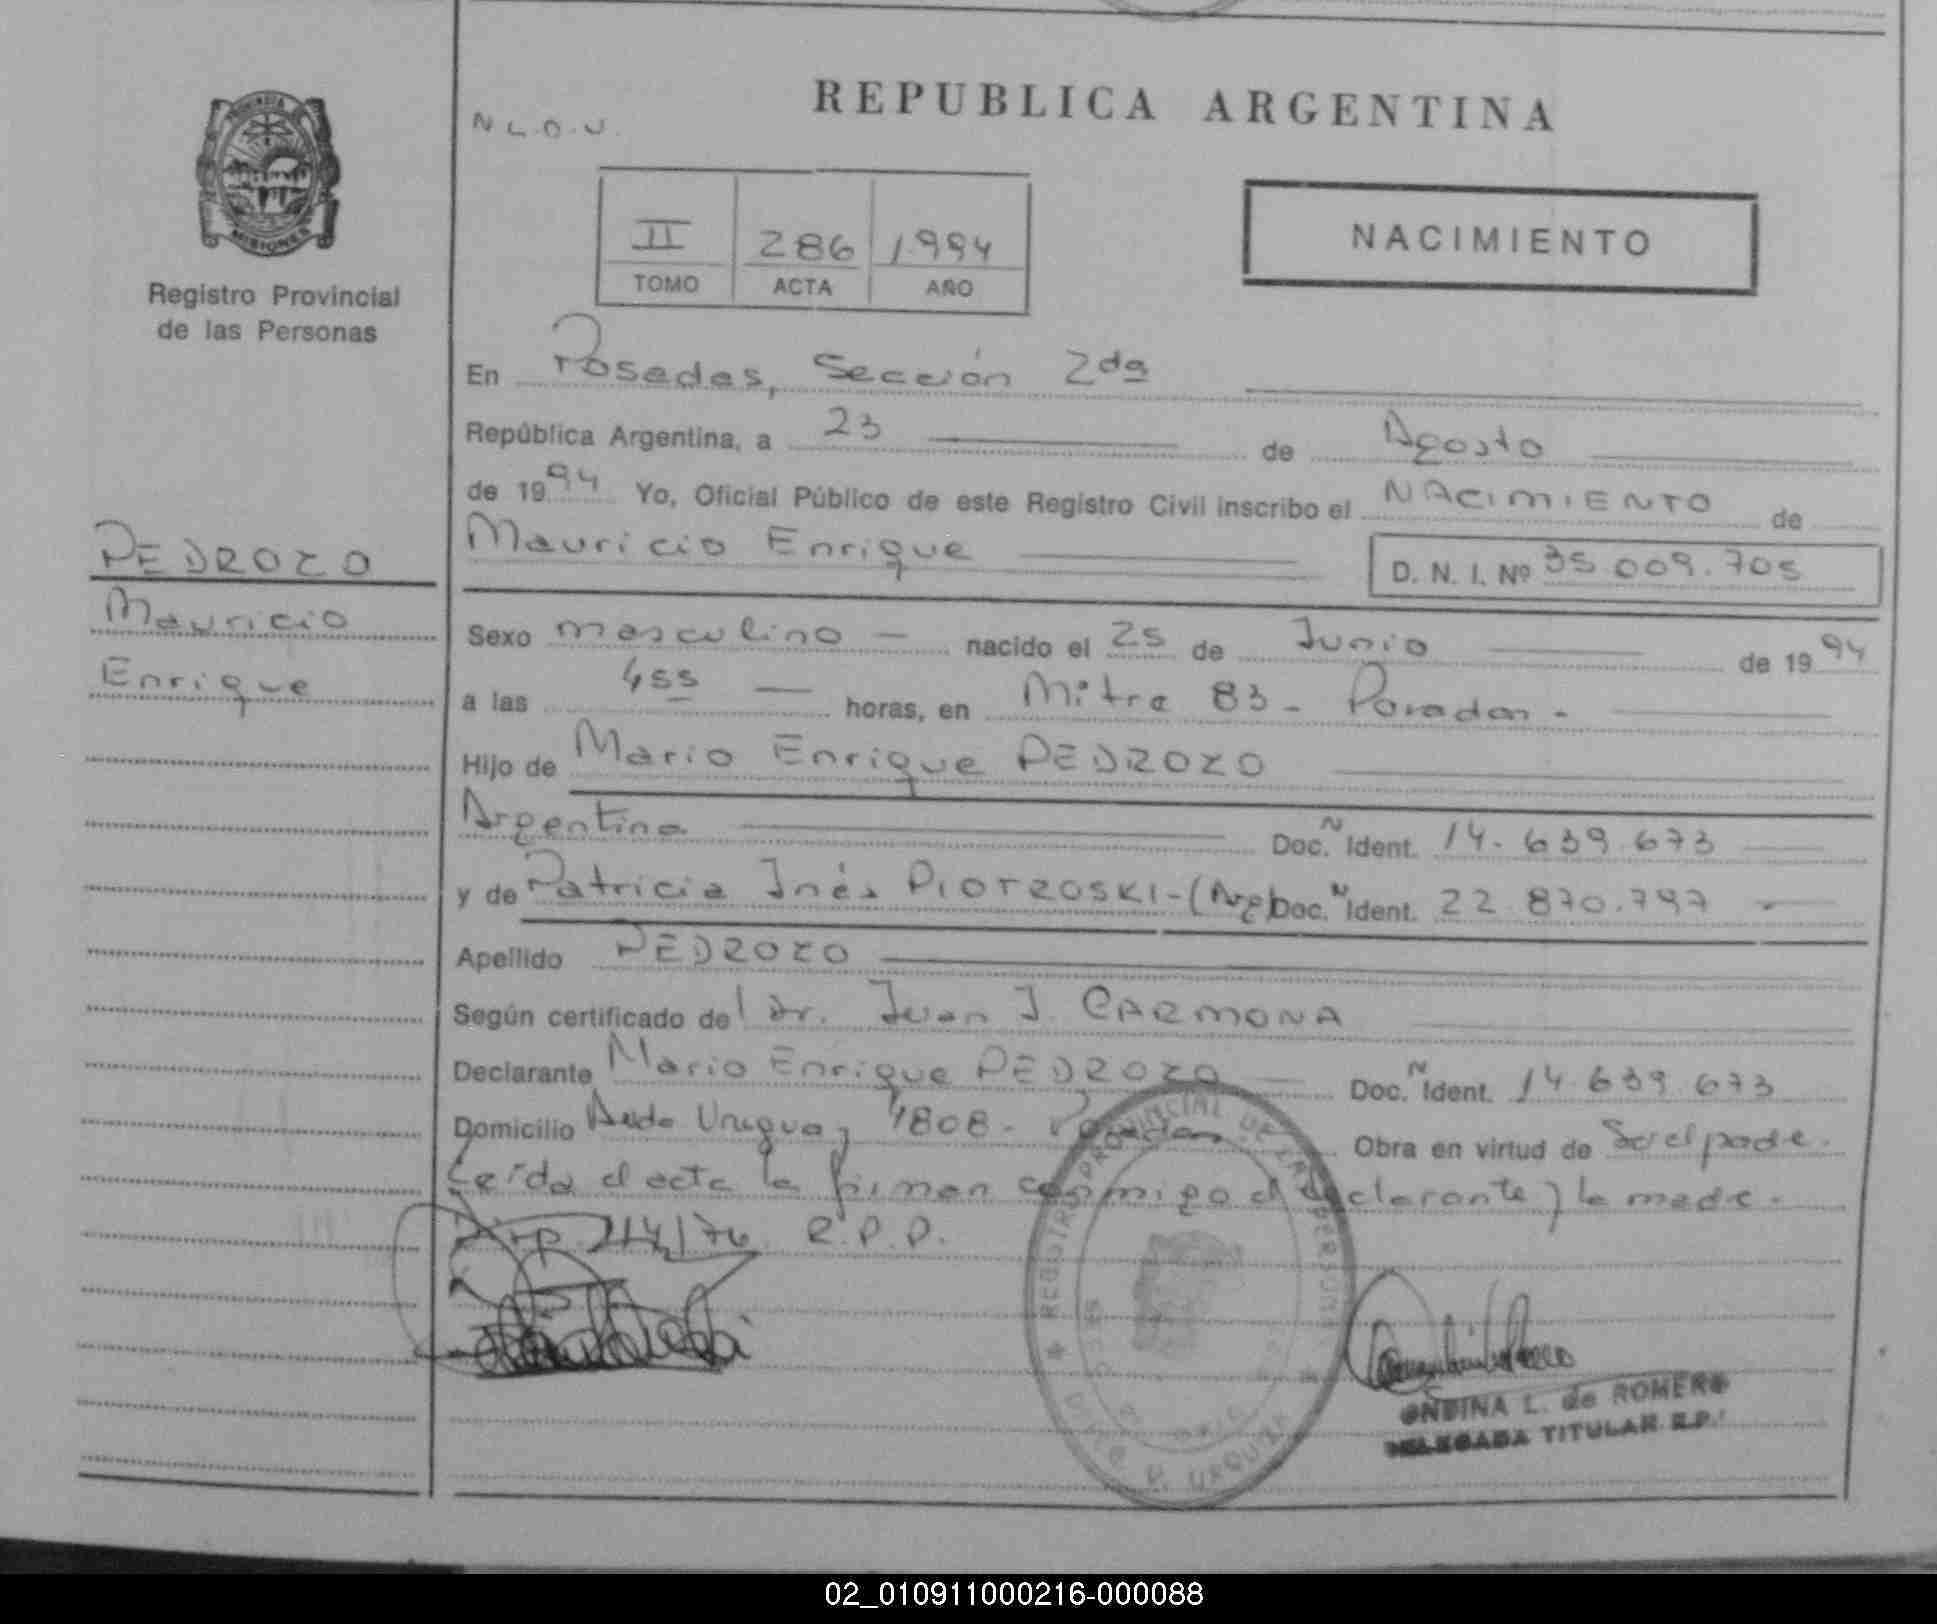 REPUBLICA ARGENTINA
N L.D.U.
PROVINCIA
MISIONES
Registro Provincial
de las Personas
II 286 1.994
TOMO ACTA AÑO
NACIMIENTO
En Posadas, Sección 2da
República Argentina, a 23 de Agosto
de 1994 Yo, Oficial Público de este Registro Civil inscribo el NACIMIENTO de
Mauricio Enrique D. N. I. Nº 35.009.705
PEDROZO
Mauricio
Enrique
Sexo masculino nacido el 25 de Junio de 1994
a las 455 horas, en Mitre 83 - Posadas -
Hijo de Mario Enrique PEDROZO
Argentino Doc. N Ident. 14.639.673
y de Patricia Inés PIOTROSKI - (Arg) Doc. N Ident. 22.870.797
Apellido PEDROZO
Según certificado del Dr. Juan J. CARMONA
Declarante Mario Enrique PEDROZO Doc. N Ident. 14.639.673
Domicilio Avda Uruguay 4808 - Posadas Obra en virtud de Ser el padre.
Leída el acta la firman conmigo el declarante y la madre.
214/76 R.P.P.
REGISTRO PROVINCIAL DE LAS PERSONAS
ONDINA L. de ROMERO
DELEGADA TITULAR R.P.
02_010911000216-000088